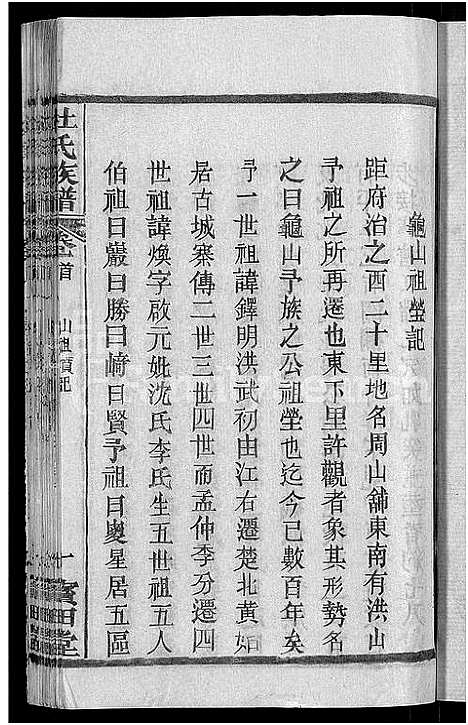 龜山祖塋記
距府治之西二十里地名周山舖東南有洪山
予祖之所再遷也東下里許觀者象其形勢名
之曰龜山予族之公祖塋也迄今已數百年矣
予一世祖諱鐸明洪武初由江右遷楚北黃始
居古城寨傳二世三世四世而孟仲季分遷四
世祖諱煥字啟元妣沈氏李氏生五世祖五人
伯祖曰巖曰勝曰崎曰賢予祖曰奧星居五區
杜氏族譜
卷首
山祖塋記
一
寶田堂